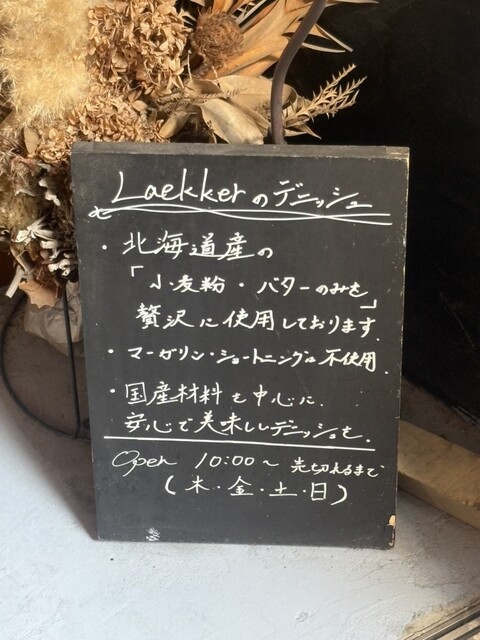 Laekkerのデニッシュ
・北海道産の
「小麦粉・バターのみを」
贅沢に使用しております.
・マーガリン・ショートニングは不使用.
・国産材料を中心に.
安心で美味しいデニッシュを.
Open 10:00～ 売切れるまで
(木・金・土・日)